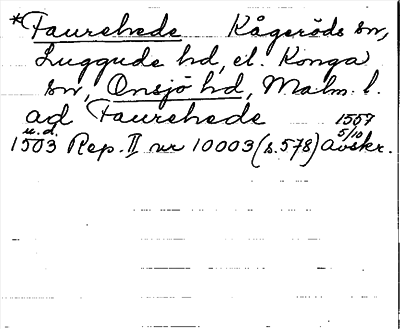 *Faurehede Kågeröds sn,
Luggude hd, el. Konga
sn, Onsjö hd, Malm. l.
ad Faurehede 1557
u.d. 5/10
1503 Rep. II nr 10003 (s.578) Avskr.